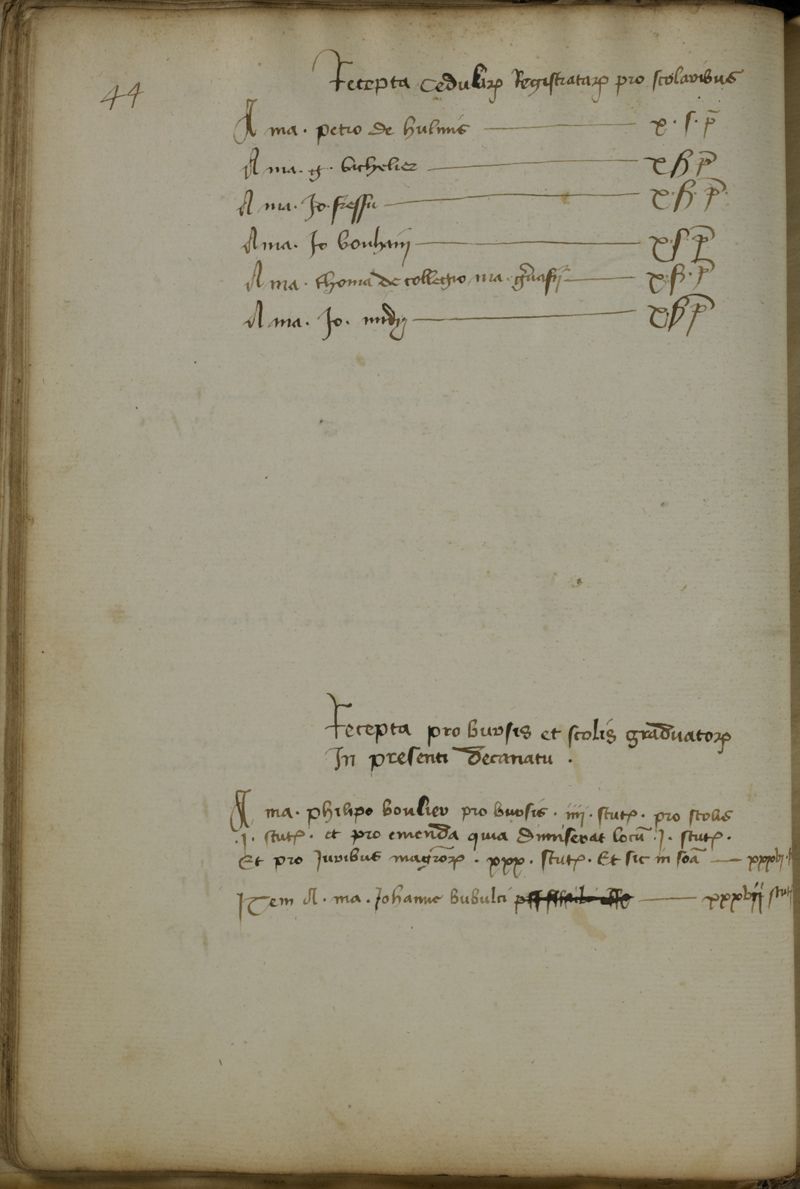 44
Recepta cedularum Registratarum pro scolaribus
A ma. petro de hulmis x. s. p
A ma. g. bichelier x s p
A ma. Jo. fressu x s p
A ma. Jo bouhariij x s p
A ma. thoma de collegio ma. gervasij x s p
A ma. Jo. x s p
Recepta pro bursis et scolis graduatorum
In presenti decanatu .
A ma. philipo boulier pro bursis . iiij . scut. pro scolis
.j. scut. et pro emenda quia dimiserat locum .j. scut.
Et pro Juribus magrorum . xxx . scut. Et sic in soa xxxvj
Item A. ma. Johanne bubulci xxxvij scut